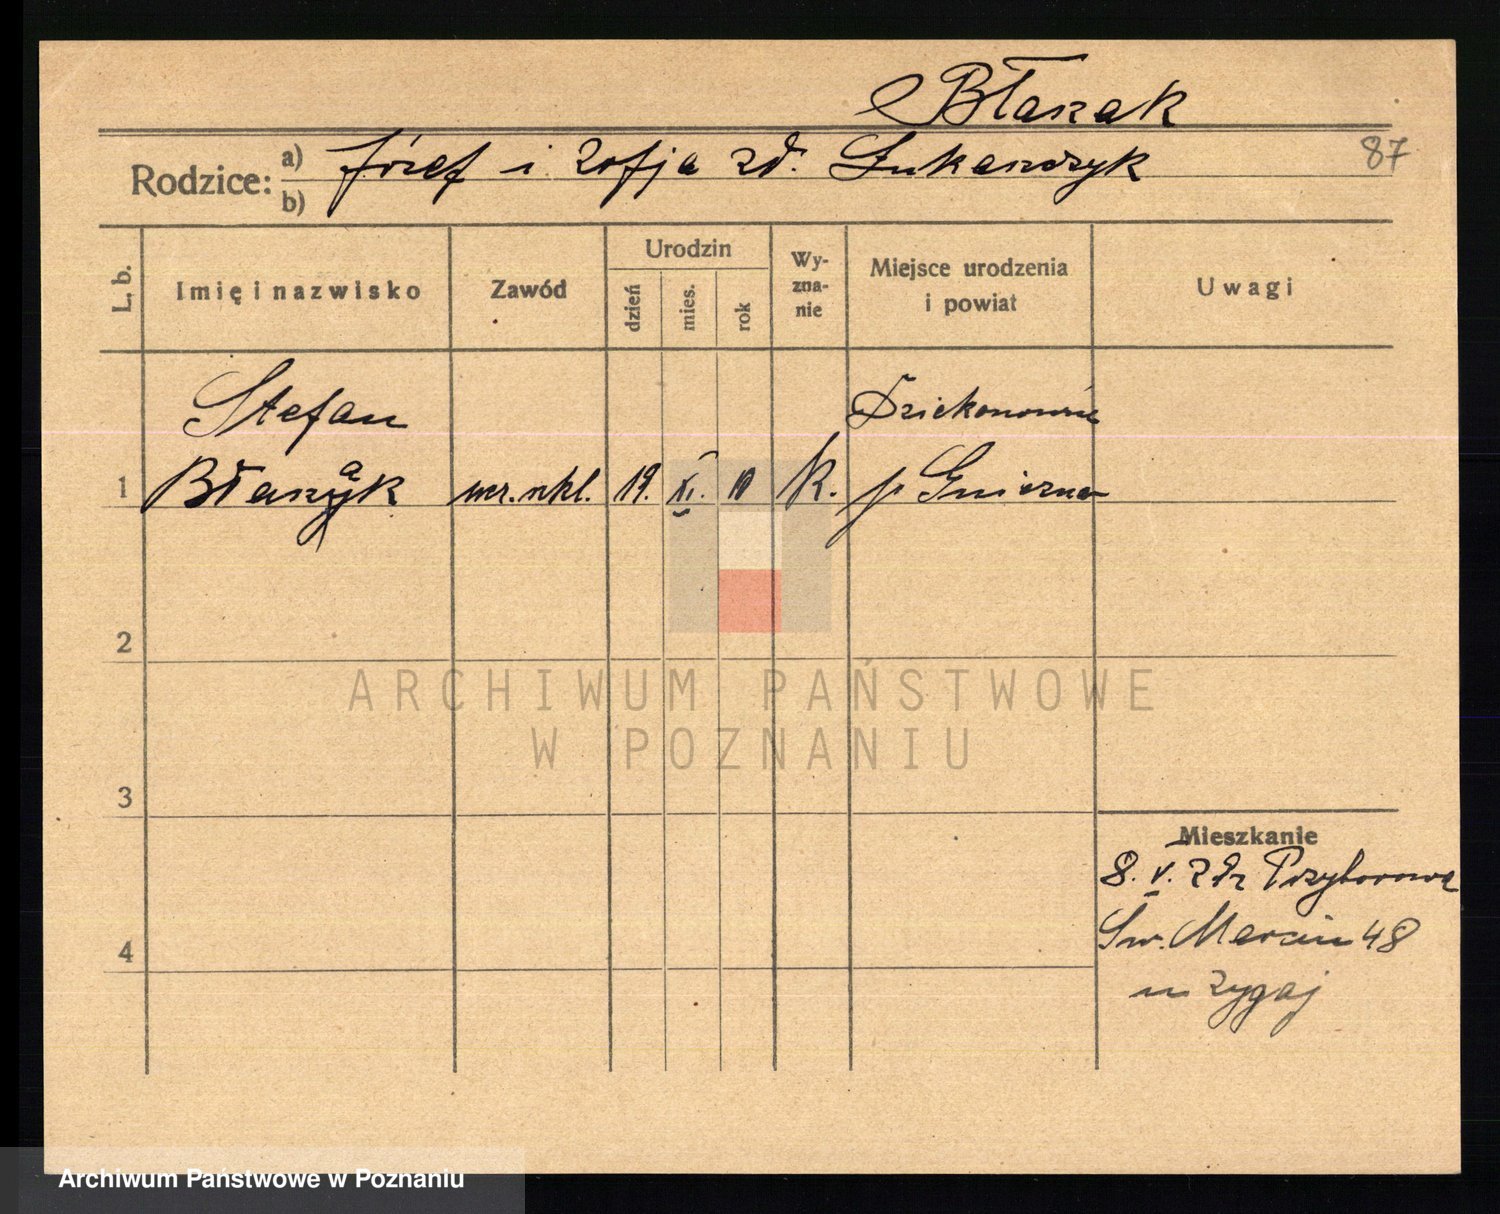 Błaszak
87
Rodzice: a) Józef i Zofja zd. Łukaszczyk
b)
L. b.
Imię i nazwisko
Zawód
Urodzin
dzień
mies.
rok
Wy-
zna-
nie
Miejsce urodzenia
i powiat
Uwagi
Stefan
1 Błaszak 19. XI. 10 k. p Gniezno
2
3
4
Mieszkanie
8. V. Przyborowa
Św. Marcin 48
ARCHIWUM PAŃSTWOWE
W POZNANIU
Archiwum Państwowe w Poznaniu